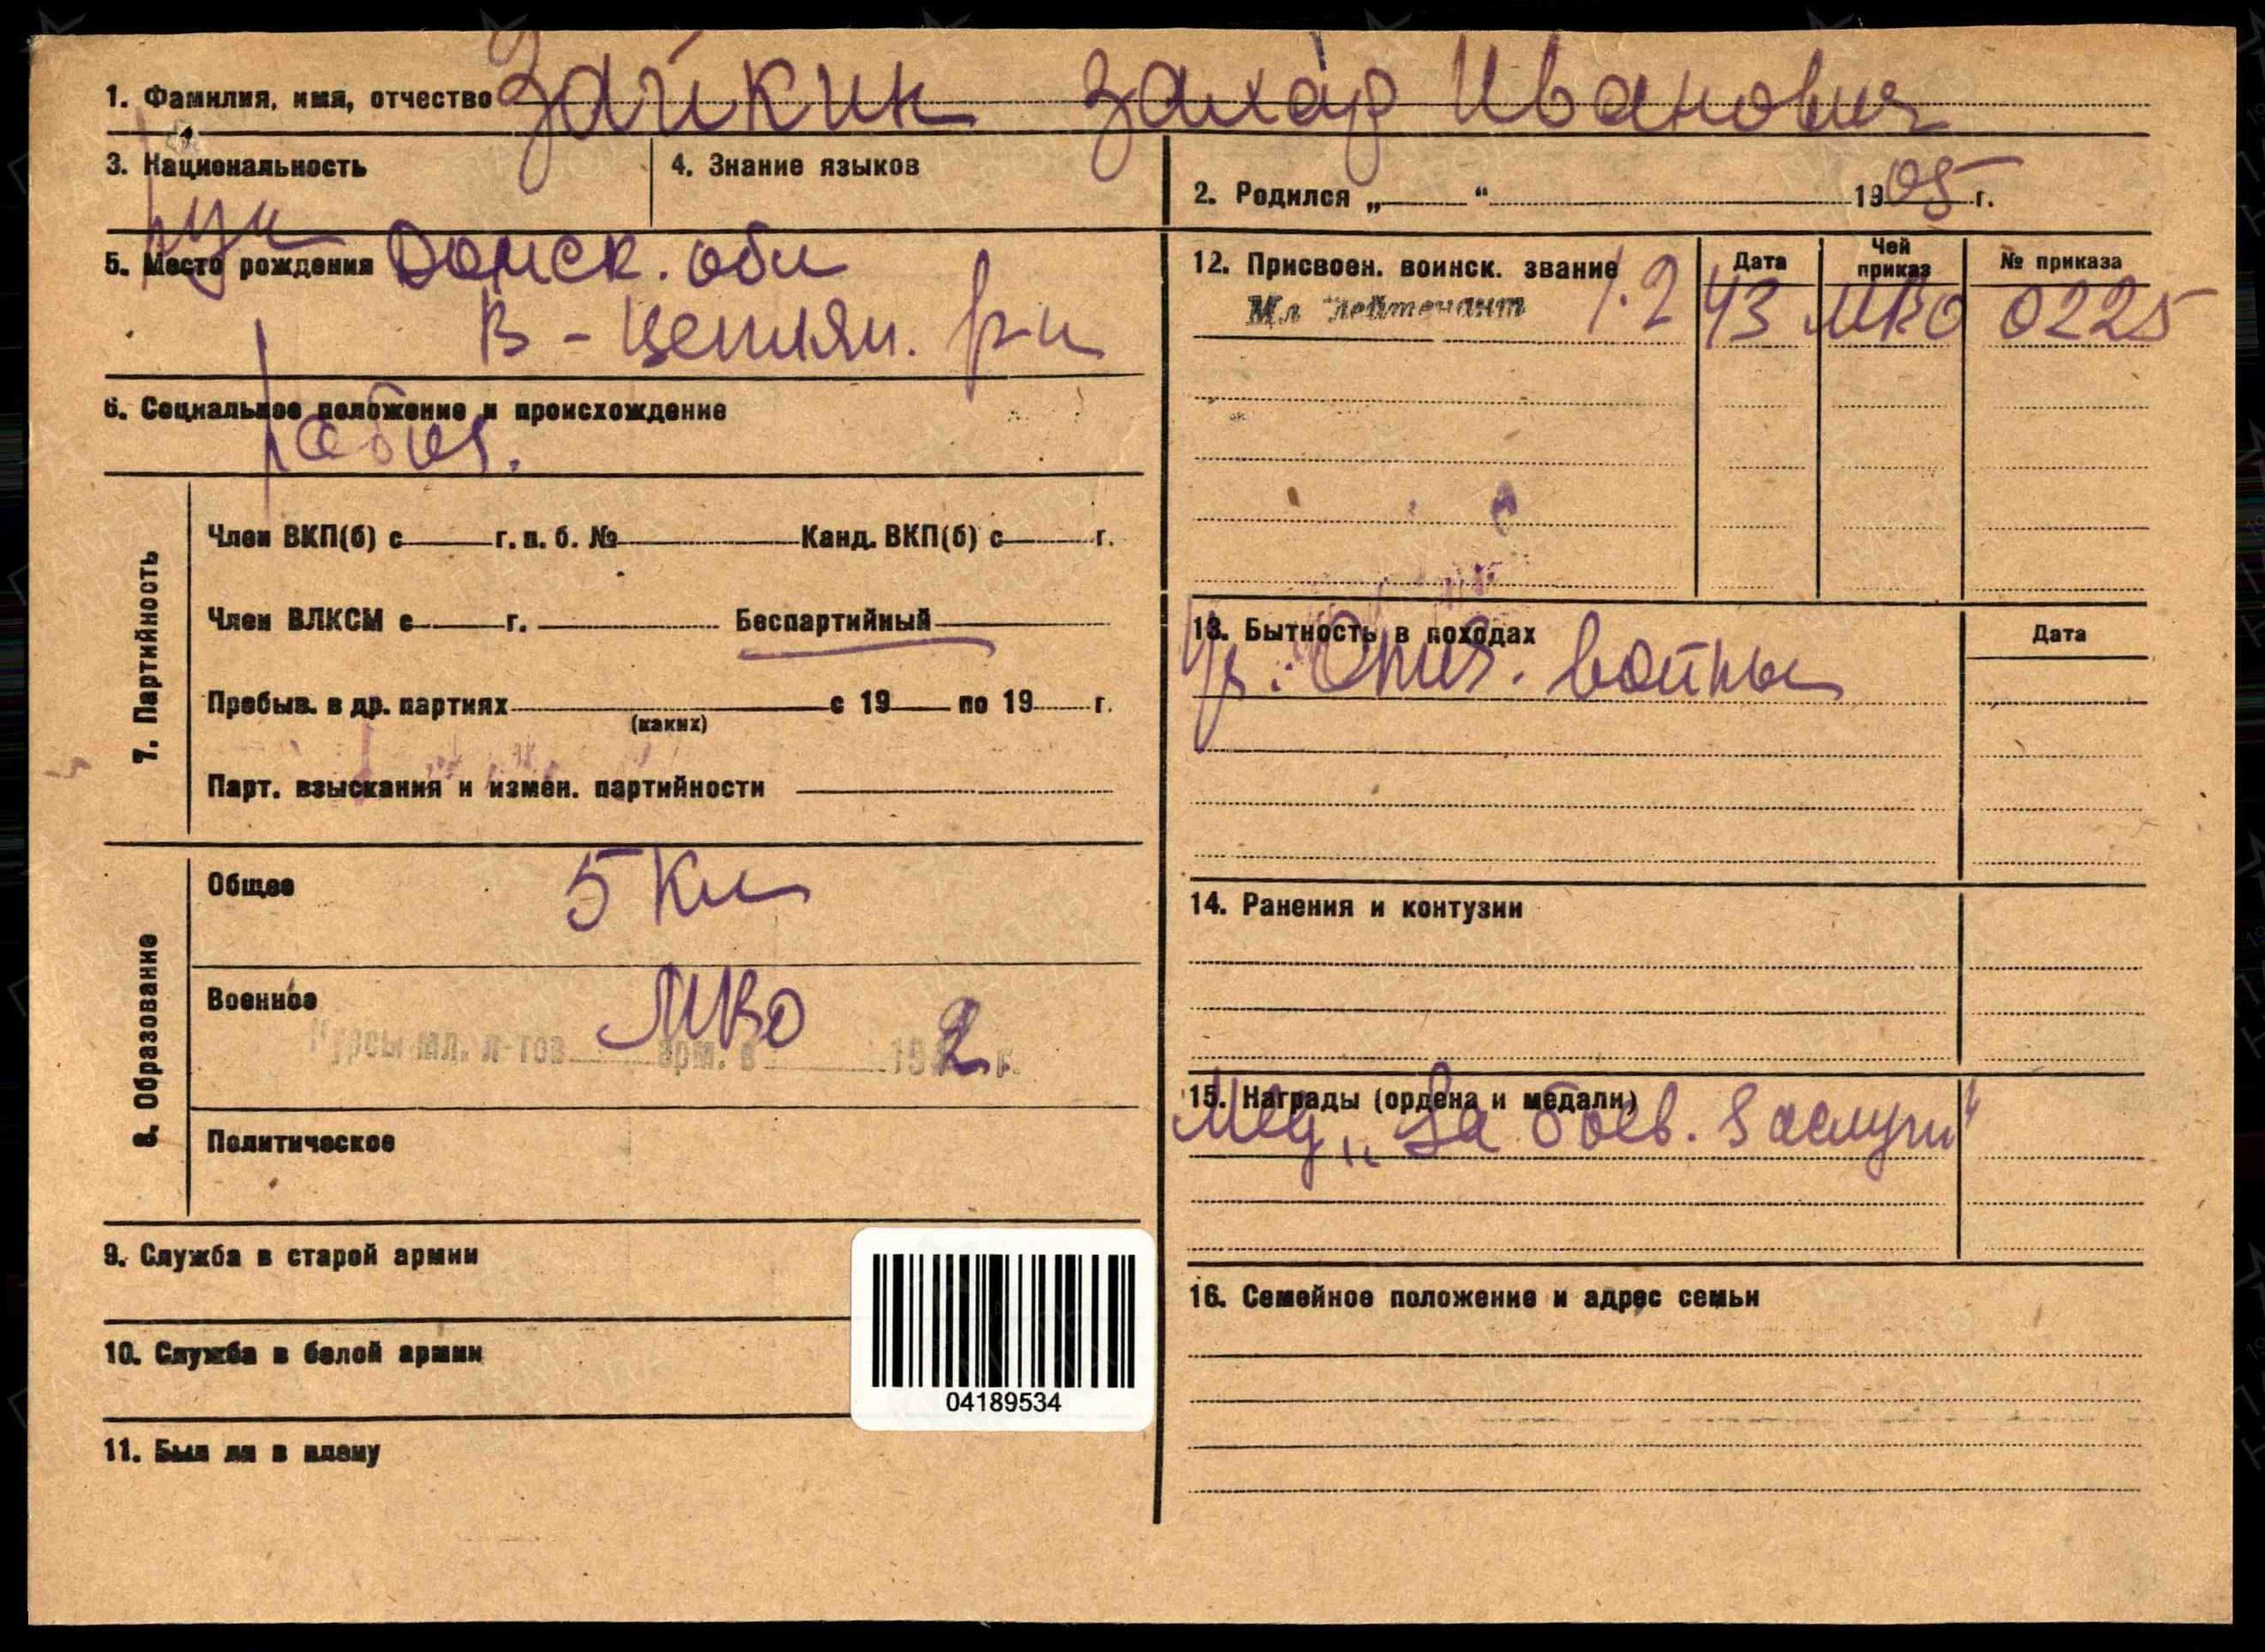 1. Фамилия, имя, отчество Зайкин Захар Иванович
3. Национальность
рус
4. Знание языков
2. Родился „ “ 1905 г.
5. Место рождения Донск. обл
В - р-н
6. Социальное положение и происхождение
рабоч.
7. Партийность
Член ВКП(б) с г. п. б. № Канд. ВКП(б) с г.
Член ВЛКСМ с г. Беспартийный
Пребыв. в др. партиях с 19 по 19 г.
(каких)
Парт. взыскания и измен. партийности
8. Образование
Общее 5 Кл
Военное МВО
Курсы мл. л-тов арм. в 19 2 г.
Политическое
9. Служба в старой армии
10. Служба в белой армии
11. Был ли в плену
04189534
12. Присвоен. воинск. звание Дата Чей приказ № приказа
Мл лейтенант 1.2 43 МВО 0225
13. Бытность в походах Дата
Уч. Отеч. войны
14. Ранения и контузии
15. Награды (ордена и медали)
Мед „За боев. заслуги"
16. Семейное положение и адрес семьи